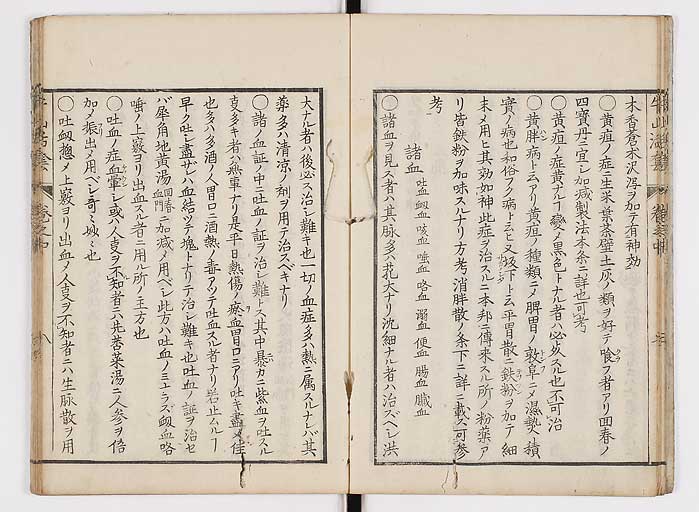 木香蒼朮沢瀉ヲ加テ有神効
〇黄疸ノ症ニ生米葉茶壁土灰ノ類ヲ好テ喰フ者アリ回春ノ
四寶丹ニ宜シ加減製法本条ニ詳也可考
〇黄疸ノ症黄ナル丁変ノ黒色トナル者ハ必死スル也不可治
〇黄胖病ト云アリ黄疸ノ種類ニノ脾胃ノ敦阜ニノ濕熱ノ積
實ノ病也和俗フク病ト云ヒ又坂下ト云平胃散ニ鉄粉ヲ加テ細
末メ用ヒ其効如神此症ヲ治スルニ本邦ニ傳来スル所ノ粉薬ア
リ皆鉄粉ヲ加味スルナリ方考消胖散ノ条下ニ詳ニ載ス可参
考
諸血 吐血 衂血 咳血 唾血 咯血 溺血 便血 腸血 臓血
〇諸血ヲ見ス者ハ其脉多ハ芤大ナリ沈細ナル者ハ治スベシ洪
大ナル者ハ後必ス治シ難キ也一切ノ血症多ハ熱ニ属スルナレバ其
薬多ハ清凉ノ剤ヲ用テ治スベキナリ
〇諸ノ血証ノ中ニ吐血ノ証ヲ治シ難トス其中暴カニ紫血ヲ吐スル
丁多キ者ハ無事ナリ是平日熱傷ノ瘀血胃口ニアリ吐キ盡メ佳
也多ハ多酒ノ人胃口ニ酒熱ノ毒アツテ吐血スル者ナリ若止ムル丁
早ク吐シ盡サレハ血結ツテ塊トナリテ治シ難キ也吐血ノ証ヲ治セ
バ犀角地黄湯 回春血門 ニ加減メ用ベシ此方ハ吐血ノミニラズ衂血咯
唾ノ上竅ヨリ出血スル者ニ用ル所ノ主方也
〇吐血ノ症血暈シ或ハ人事ヲ不知者ニハ先苦菜湯ニ人参ヲ倍
加メ振出メ用ベシ奇々妙々也
〇吐衂惣メ上竅ヨリ出血ノ人事ヲ不知者ニハ生脉散ヲ用